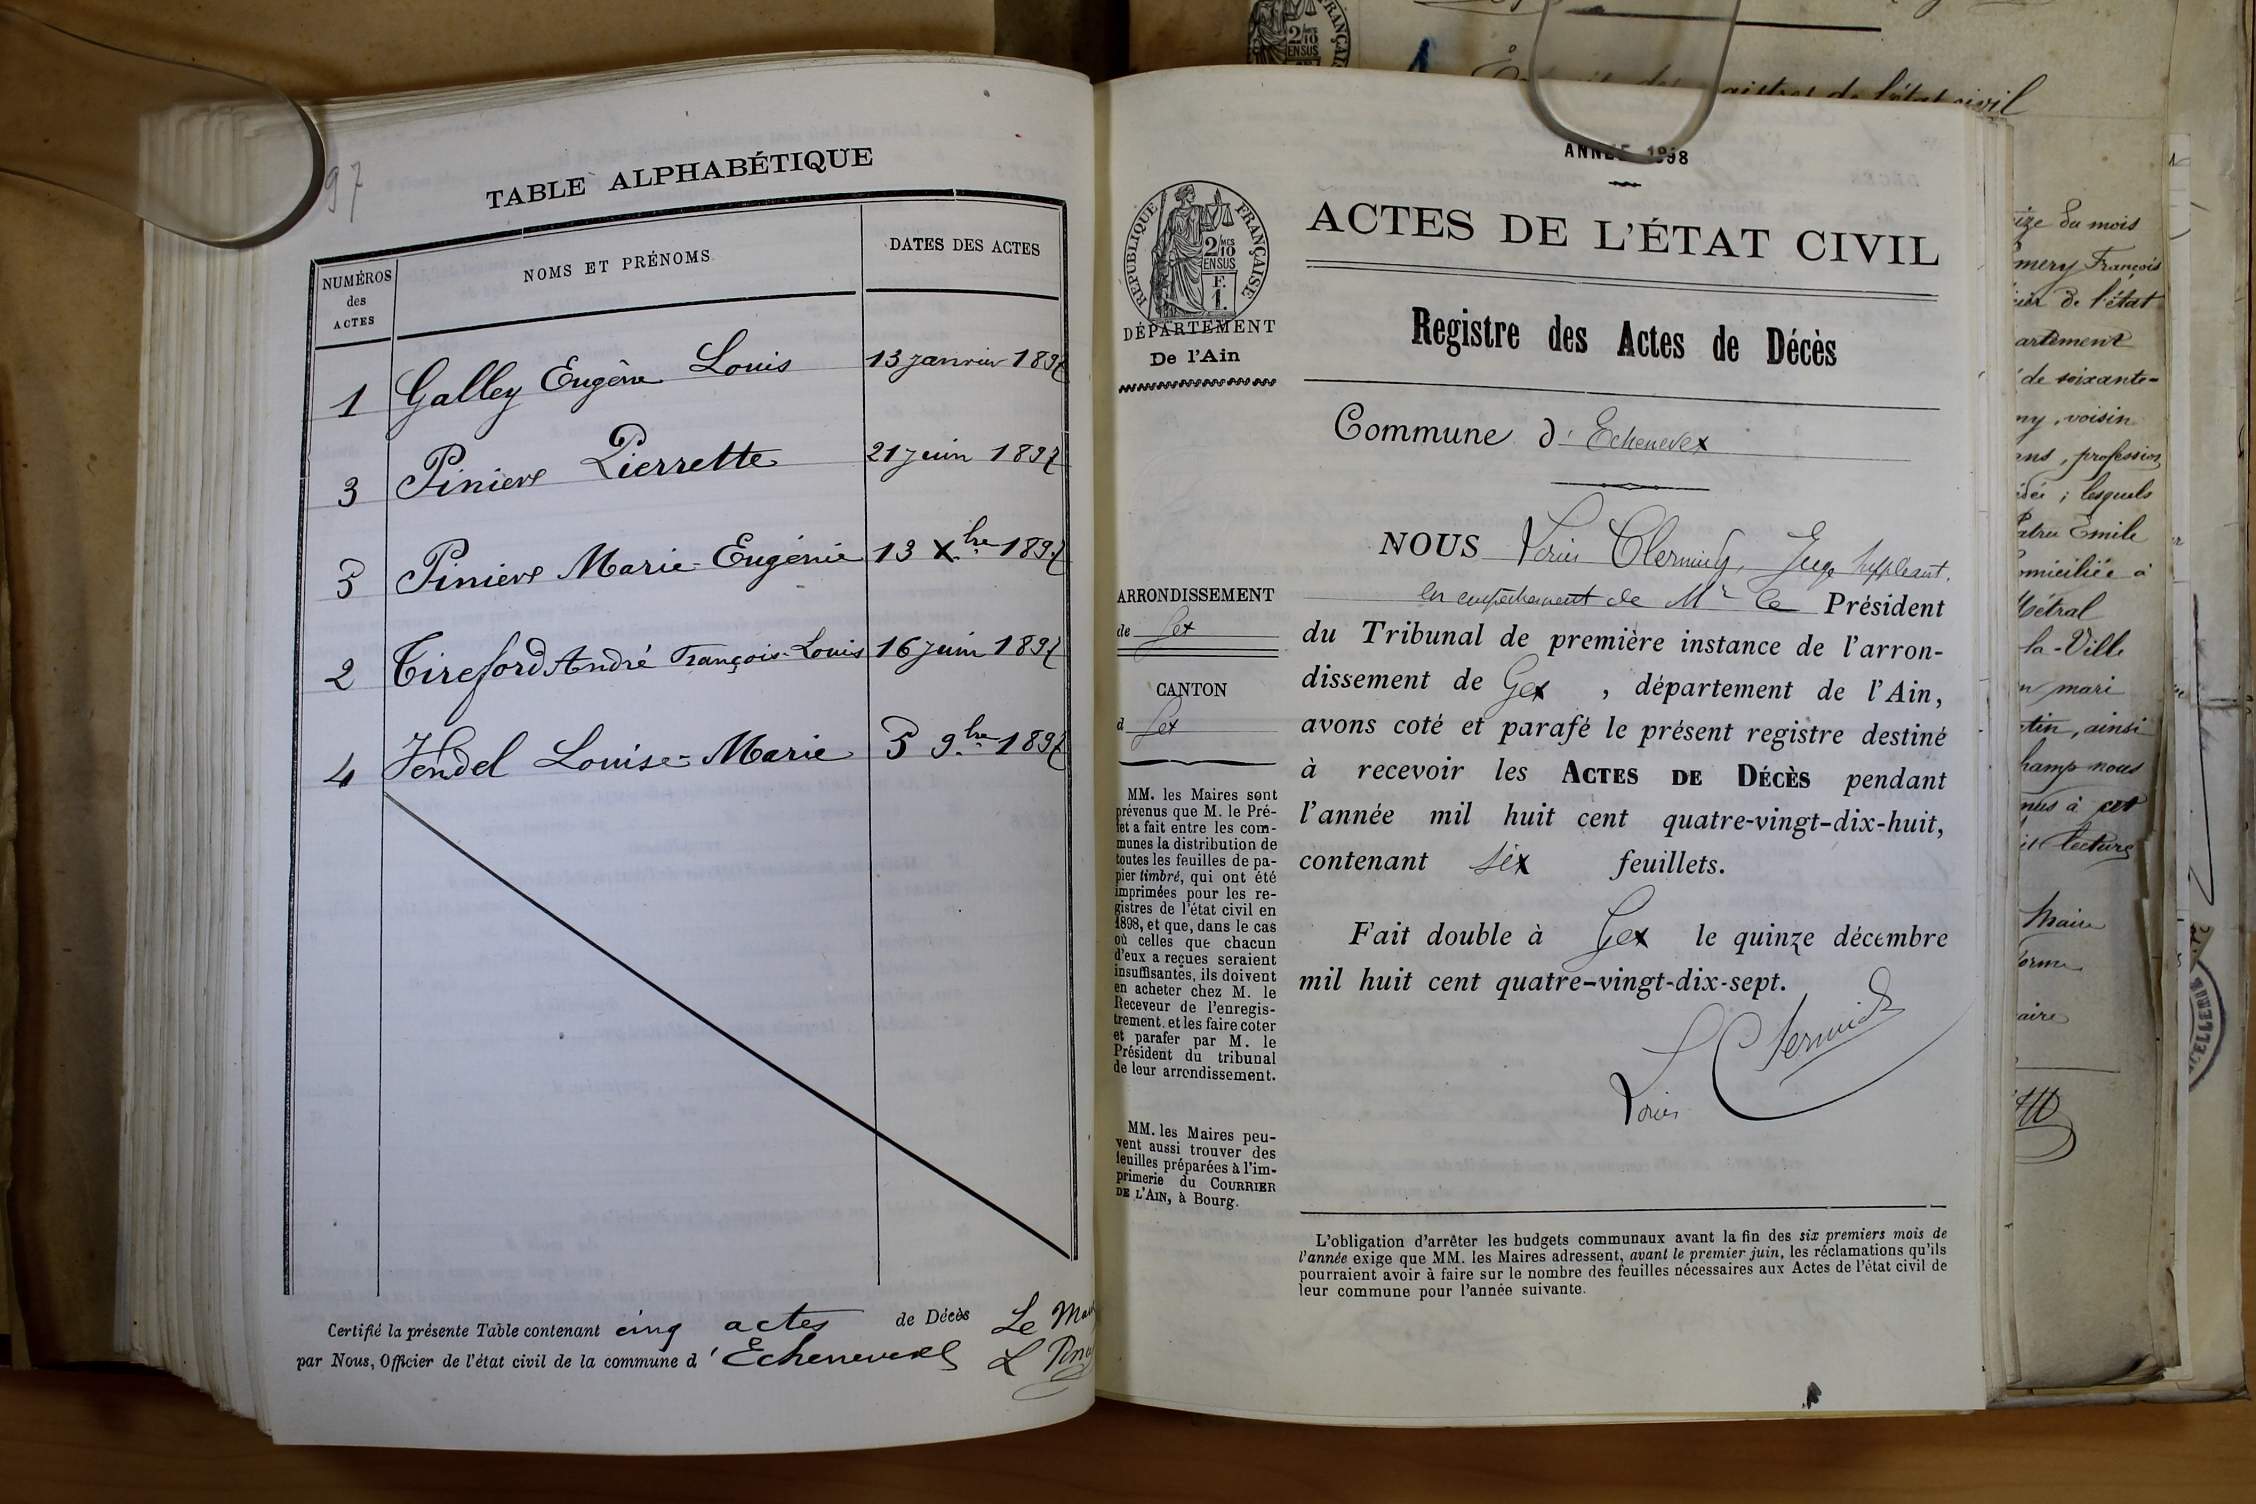 97
TABLE ALPHABÉTIQUE
NUMÉROS
des
ACTES
NOMS ET PRÉNOMS
DATES DES ACTES
1 Galley Eugène Louis 13 janvier 1897
3 Pinière Pierrette 21 juin 1897
5 Pinière Marie-Eugénie 13 Xbre 1897
2 Tireford André François-Louis 16 juin 1897
4 Vendel Louise-Marie 5 9bre 1897
Certifié la présente Table contenant cinq actes de Décès
par Nous, Officier de l'état civil de la commune d' Echenevex
Le
ANNÉE 1898
RÉPUBLIQUE FRANÇAISE
2/10
EN SUS
F.
1.
DÉPARTEMENT
De l'Ain
ARRONDISSEMENT
de Gex
CANTON
d Gex
MM. les Maires sont
prévenus que M. le Pré-
fet a fait entre les com-
munes la distribution de
toutes les feuilles de pa-
pier timbré, qui ont été
imprimées pour les re-
gistres de l'état civil en
1898, et que, dans le cas
où celles que chacun
d'eux a reçues seraient
insuffisantes, ils doivent
en acheter chez M. le
Receveur de l'enregis-
trement, et les faire coter
et parafer par M. le
Président du tribunal
de leur arrondissement.
MM. les Maires peu-
vent aussi trouver des
feuilles préparées à l'im-
primerie du COURRIER
DE L'AIN, à Bourg.
ACTES DE L'ÉTAT CIVIL
Registre des Actes de Décès
Commune d' Echenevex
NOUS Juge suppléant,
en empêchement de Mr le Président
du Tribunal de première instance de l'arron-
dissement de Gex, département de l'Ain,
avons coté et parafé le présent registre destiné
à recevoir les ACTES DE DÉCÈS pendant
l'année mil huit cent quatre-vingt-dix-huit,
contenant six feuillets.
Fait double à Gex le quinze décembre
mil huit cent quatre-vingt-dix-sept.
L'obligation d'arrêter les budgets communaux avant la fin des six premiers mois de
l'année exige que MM. les Maires adressent, avant le premier juin, les réclamations qu'ils
pourraient avoir à faire sur le nombre des feuilles nécessaires aux Actes de l'état civil de
leur commune pour l'année suivante.
de l'état civil
du mois
François
de l'état
de soixante-
voisin
profession
lesquels
Emile
à
Métral
la-Ville
mari
ainsi
nous
à cet
lecture